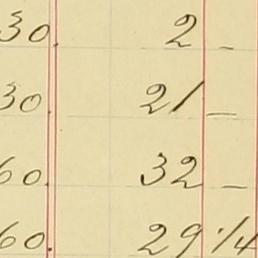 30. 2 –
30. 21 –
60. 32 –
60. 29 1/4